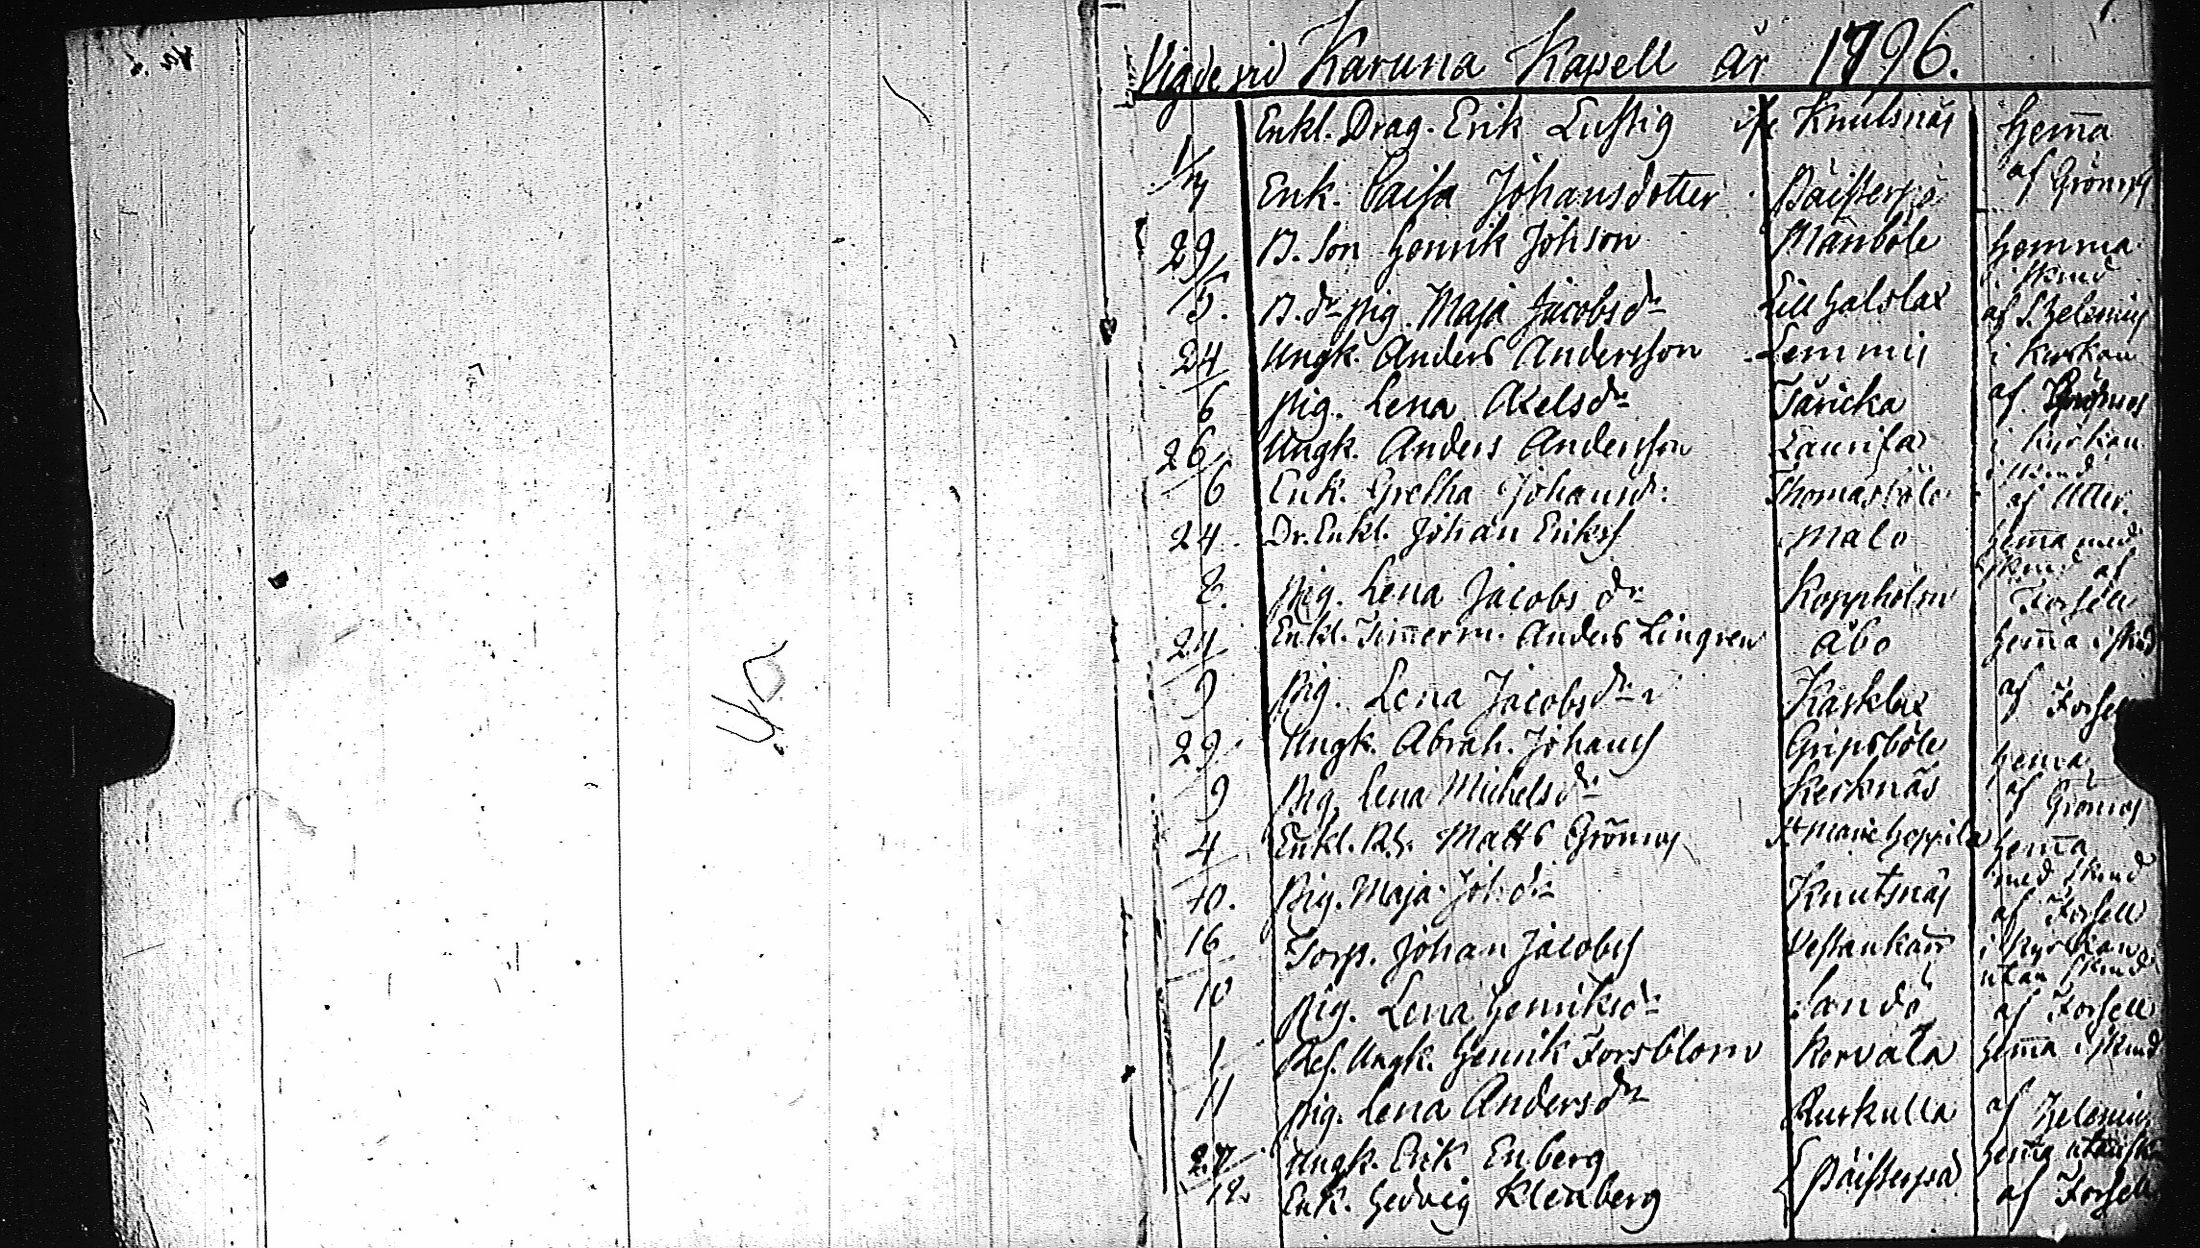 Va.
Va.
Vigde vid Karuna Kapell år 1796.
Enkl. Drag. Erik Lustig Knutsnäs hem̄a
1/4 Enk. Caisa Johansdotter Päisterpä af Grönros
29/5. B. Son Henrik Johson Månböle hemma
i skrud
B. dr pig. Maja Jacobsdr Lill Halslax af S. Helenius
24/6 Ungk. Anders Andersson Lemmis i Kyrkan
Pig. Lena Axelsdr Täricka af
26/6 Ungk. Anders Andersson Laurila i Kyrkan
i skrud
Enk. Gretha Johansdr: Thomasböle af Utter.
24/8. Dr. Enkl. Johan Erikss Malo hem̄a med
skrud af
Pig. Lena Jacobs dr Koppholm Forsell
24/9 Enkl. Tim̄erm. Anders Lingren Åbo hem̄a i skrud
Pig. Lena Jacobsdr Karklax af Forsell
29/9 Ungk. Abrah. Johanss Gripsböle hem̄a
Pig. Lena Michelsdr Kerknäs af Grönros
4/10. Enkl. Matts Grönros St Marie Heppila hem̄a
med skrud
Pig. Maja Joh. dr Knutsnäs af Forsell
16/10 Torp. Johan Jacobss Vestankärr i Kyrkan
utan skrud
Pig. Lena Henriksdr Sandö af Forsell
1/11 Res. Ungk. Henrik Forsblom Korvala hem̄a i skrud
Pig. Lena Andersdr Ruskulla af Helenius
27/12. Ungk. Erik Enberg Päisterpä hem̄a utan
Enk. Hedvig Klenberg af Forsell